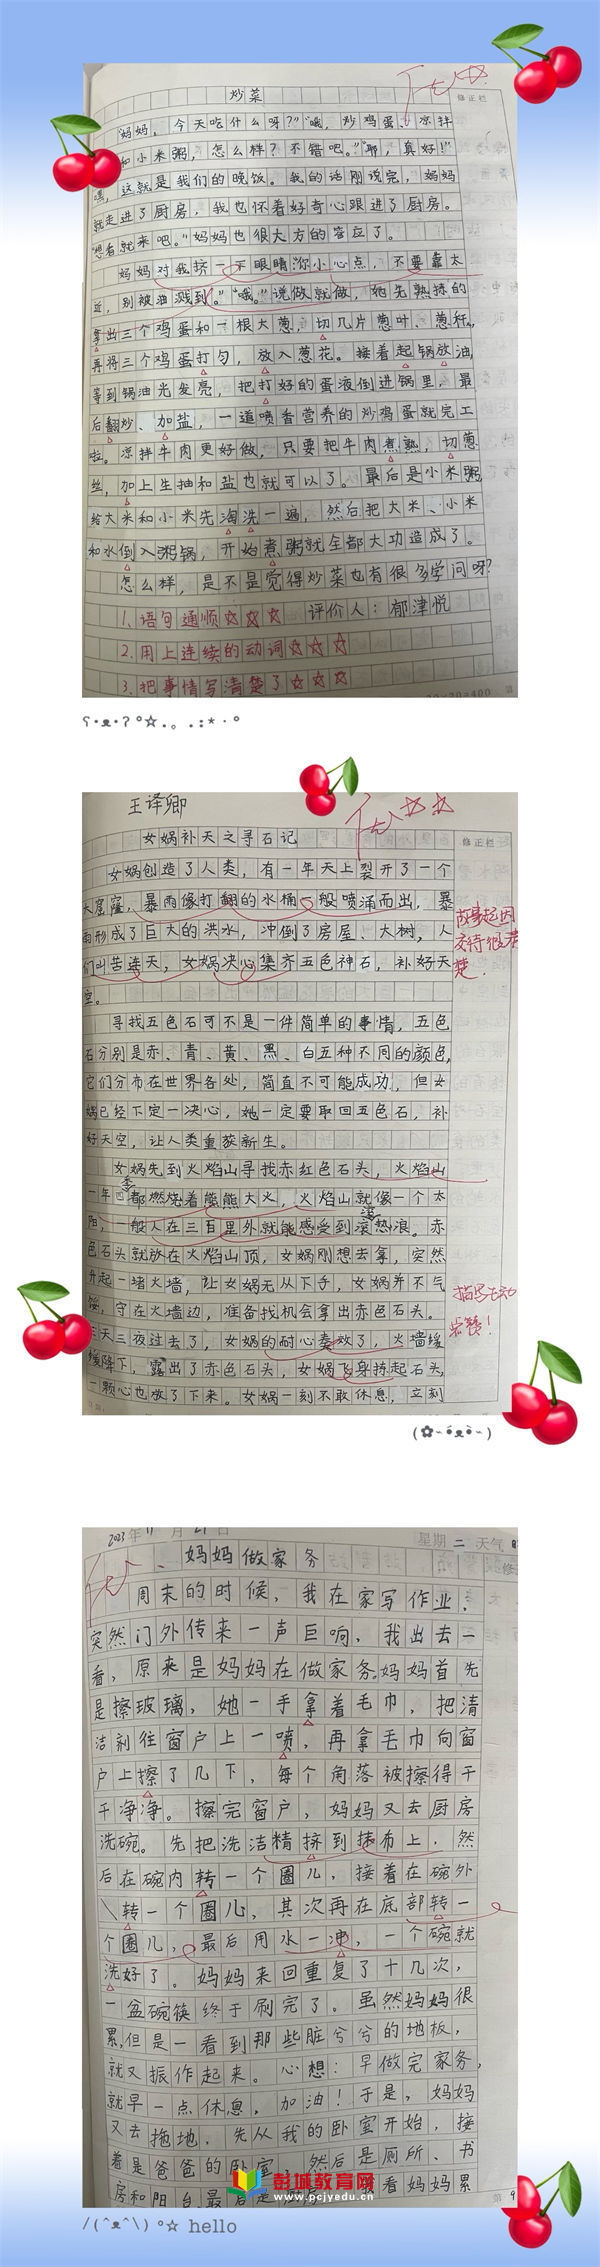 炒菜
修正栏
“妈妈，今天吃什么呀？”“哦，炒鸡蛋、凉拌
和小米粥，怎么样？不错吧。”“耶，真好！”
嘿，这就是我们的晚饭。我的话刚说完，妈妈
就走进了厨房，我也怀着好奇心跟进了厨房。
“想看就来吧。”妈妈也很大方的答应了。
妈妈对我挤一下眼睛“你小心点，不要靠太
近，别被油溅到。”“哦。”说做就做，她先熟练的
拿出三个鸡蛋和一根大葱，切几片葱叶、葱秆，
再将三个鸡蛋打匀，放入葱花。接着起锅放油，
等到锅油光发亮，把打好的蛋液倒进锅里，最
后翻炒、加盐，一道喷香营养的炒鸡蛋就完工
啦。凉拌牛肉更好做，只要把牛肉煮熟，切葱
丝，加上生抽和盐也就可以了。最后是小米粥，
给大米和小米先淘洗一遍，然后把大米、小米
和水倒入粥锅，开始煮粥就全都大功造成了。
怎么样，是不是觉得炒菜也有很多学问呀？
1.语句通顺☆☆☆ 评价人：郁津悦
2.用上连续的动词☆☆☆
3.把事情写清楚了☆☆☆
20×20=400 第
ʕ·ᴥ·ʔ°☆.。.:*·°
王译卿
女娲补天之寻石记
修正栏
女娲创造了人类，有一年天上裂开了一个
大窟窿，暴雨像打翻的水桶一般喷涌而出，暴
雨形成了巨大的洪水，冲倒了房屋、大树，人
们叫苦连天，女娲决心集齐五色神石，补好天
空。
故事起因
交待很清
楚.
寻找五色石可不是一件简单的事情，五色
石分别是赤、青、黄、黑、白五种不同的颜色，
它们分布在世界各处，简直不可能成功，但女
娲已经下定一决心，她一定要取回五色石，补
好天空，让人类重获新生。
女娲先到火焰山寻找赤红色石头，火焰山
一年四季都燃烧着熊熊大火，火焰山就像一个太
阳，一般人在三百里外就能感受到滚滚热浪。赤
色石头就放在火焰山顶，女娲刚想去拿，突然
升起一堵火墙，让女娲无从下手，女娲并不气
馁，守在火墙边，准备找机会拿出赤色石头。
三天三夜过去了，女娲的耐心奏效了，火墙缓
缓降下，露出了赤色石头，女娲飞身拣起石头，
一颗心也放了下来。女娲一刻不敢休息，立刻
描写生动
点赞！
2023年11月21日
星期二 天气
妈妈做家务
周末的时候，我在家写作业，
突然门外传来一声巨响，我出去一
看，原来是妈妈在做家务。妈妈首先
是擦玻璃，她一手拿着毛巾，把清
洁剂往窗户上一喷，再拿毛巾向窗
户上擦了几下，每个角落被擦得干
干净净。擦完窗户，妈妈又去厨房
洗碗。先把洗洁精挤到抹布上，然
后在碗内转一个圈儿，接着在碗外
转一个圈儿，其次再在底部转一
个圈儿，最后用水一冲，一个碗就
洗好了。妈妈来回重复了十几次，
一盆碗筷终于刷完了。虽然妈妈很
累，但是一看到那些脏兮兮的地板，
就又振作起来。心想：早做完家务，
就早一点休息，加油！于是，妈妈
又去拖地，先从我的卧室开始，接
着是爸爸的卧室，然后是厕所、书
房和阳台，最后是 看妈妈累
彭城教育网
www.pcjyedu.cn
第 9
/(ˆᴥˆ\)°☆ hello